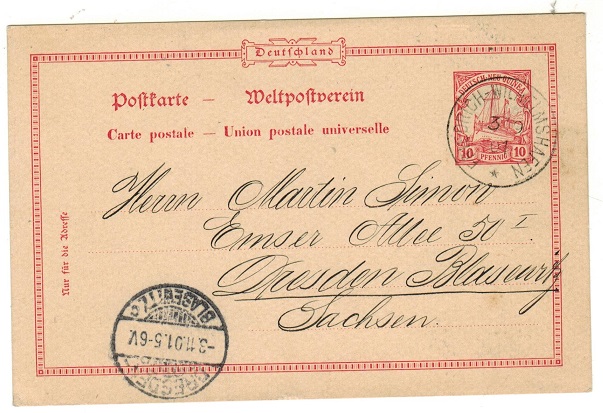 Deutschland
DEUTSCH-NEU-GUINEA
10 PFENNIG 10
FRIEDRICH-WILHELMSHAFEN
Postkarte — Weltpostverein
Carte postale — Union postale universelle
Herrn Martin Simon
Emser Allee 50 I
Dresden Blasewitz
Sachsen.
Nur für die Adresse
BLASEWITZ
-3.11.01.5-6V.
DRESDEN